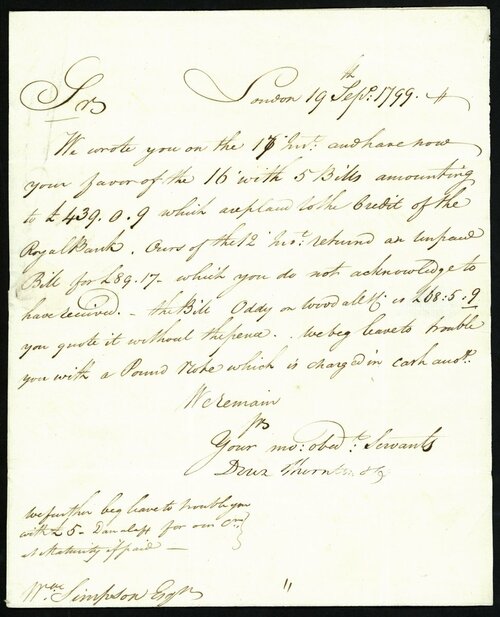 London 19th Sepr. 1799.
Srs
We wrote you on the 17 Inst. and have now
your favor of the 16 with 5 Bills amounting
to £439.0.9 which are placed to the Credit of the
Royal Bank. Ours of the 12 Inst. returnd an unpaid
Bill for £89.17- which you do not acknowledge to
have received. - the Bill Oddy on Woodale is £68:5.9
you quote it without the pence. We beg leave to trouble
you with a Pound Note which is charged in Cash
We remain
Srs
Your mo: obedt. Servants
we further beg leave to trouble you
with £5 - for our
at Maturity if paid -
Wm Simpson Esqr